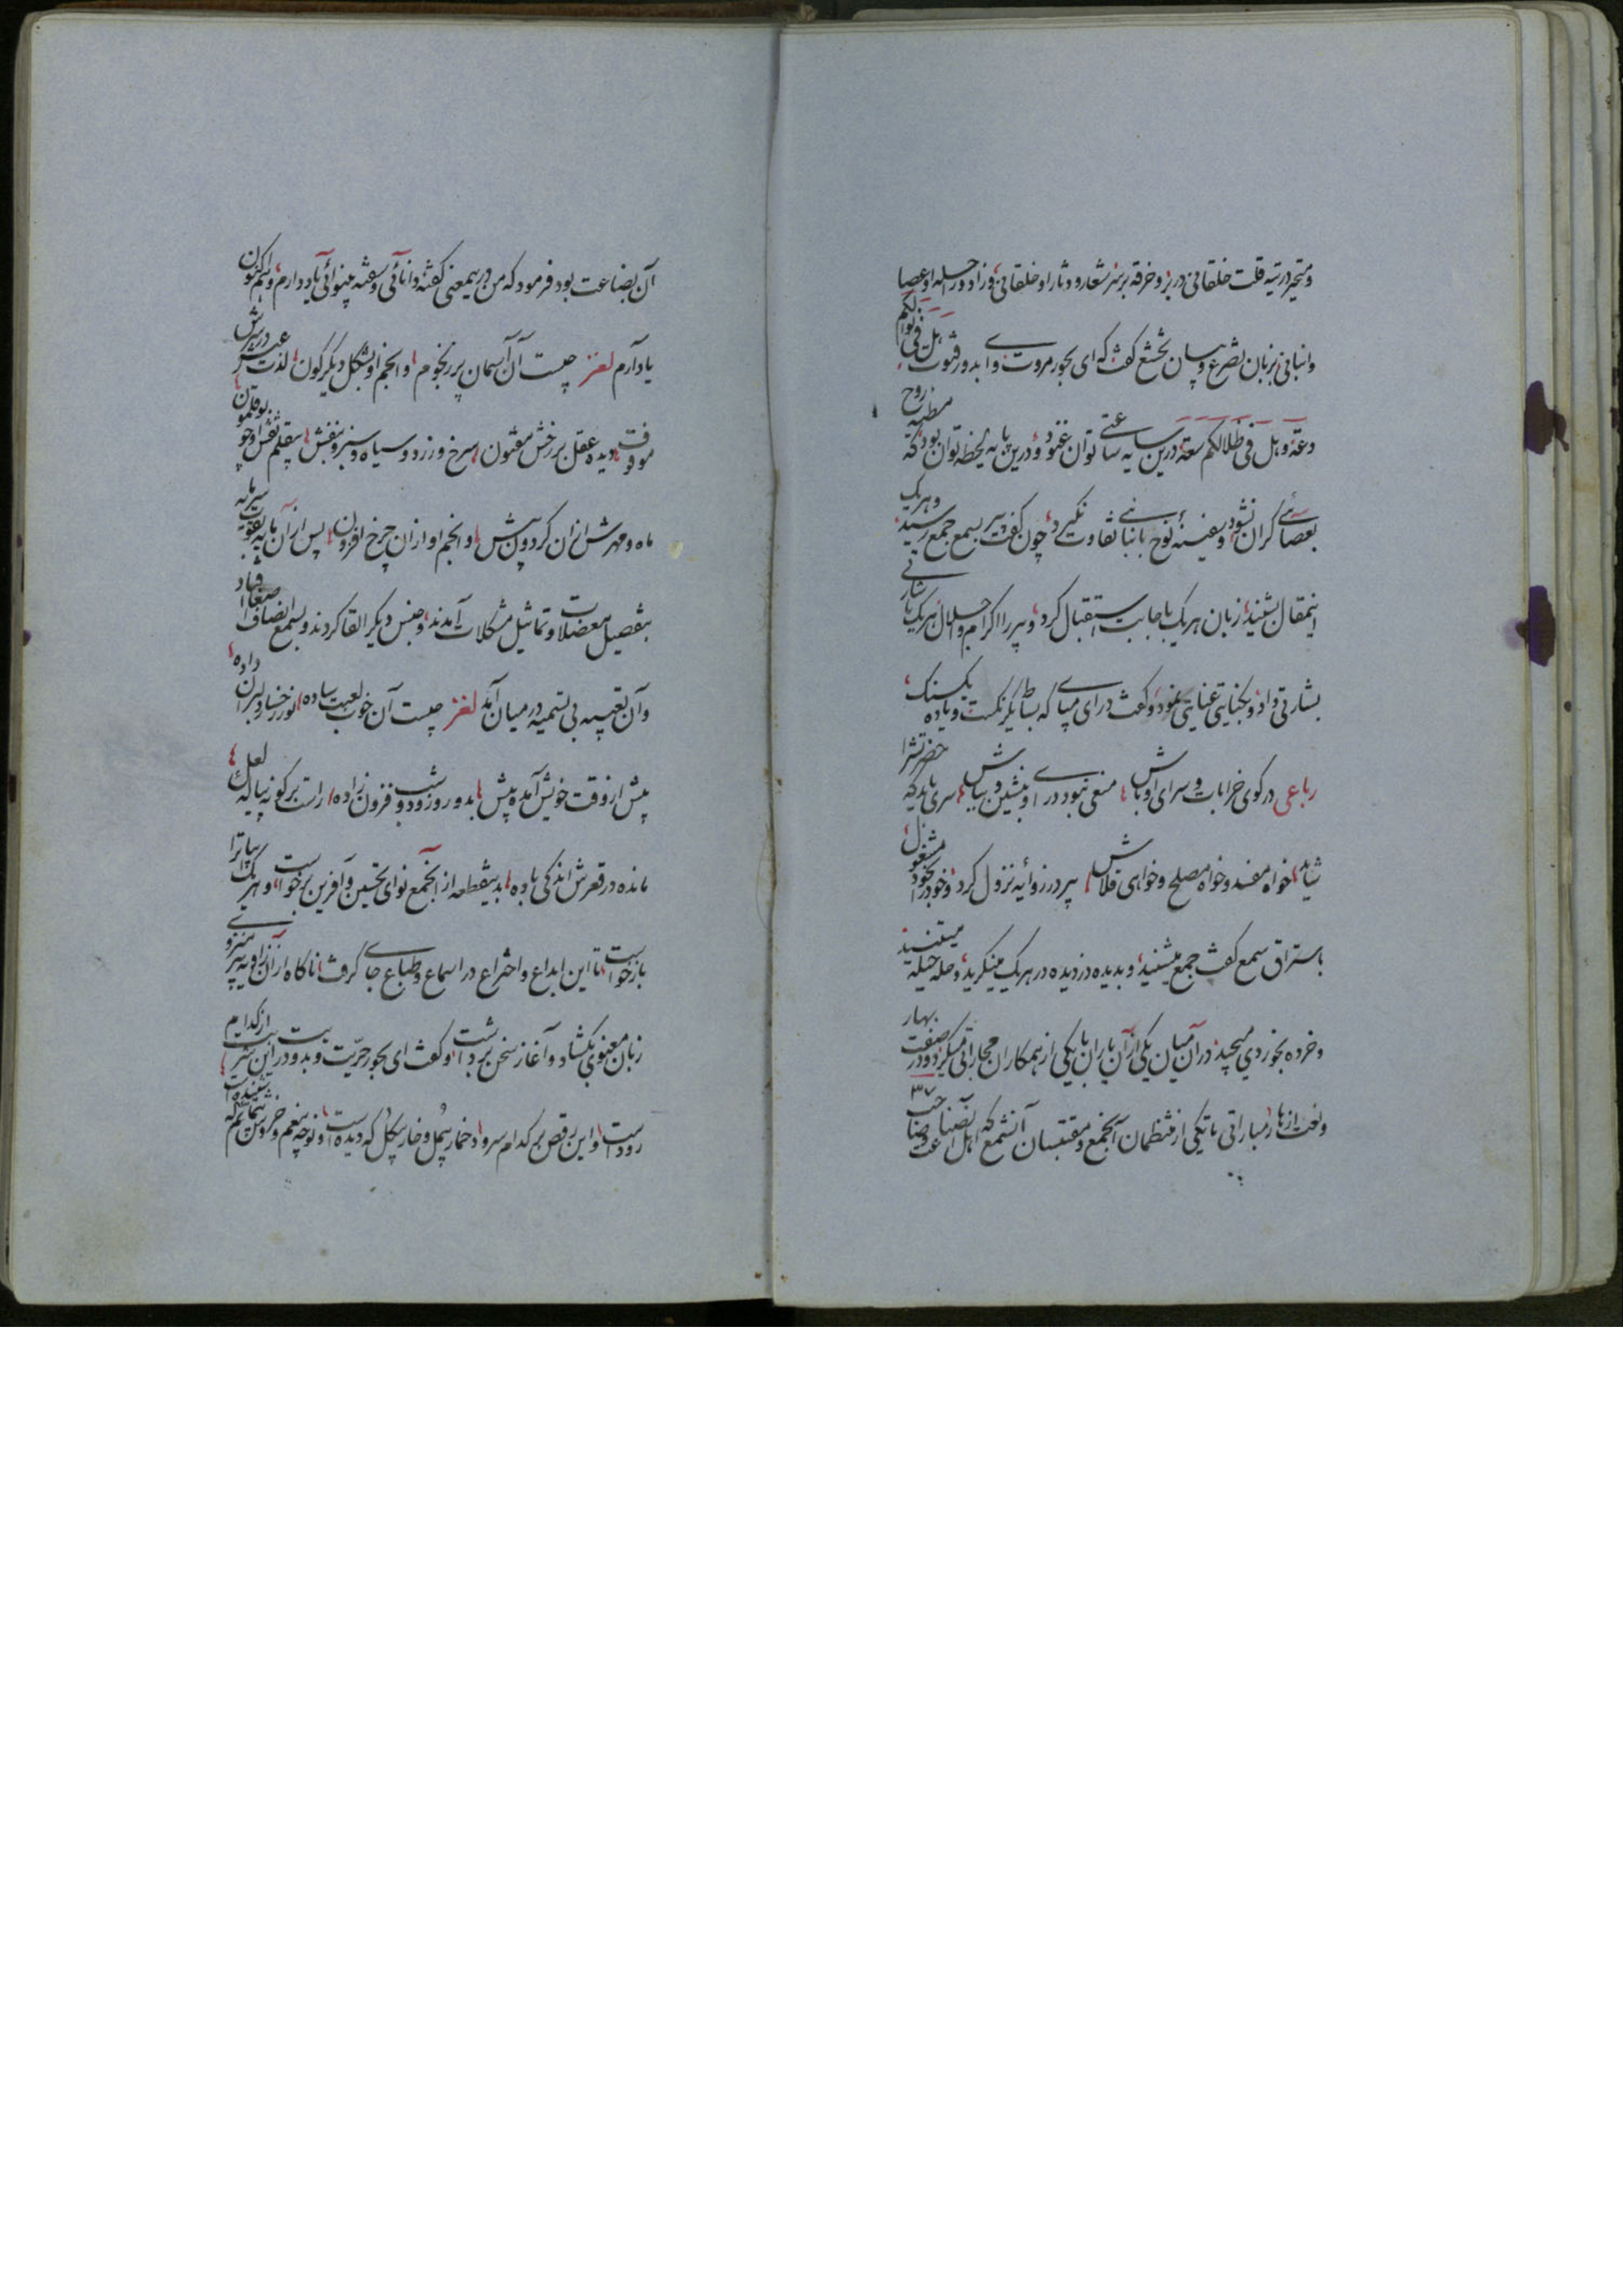 ومتحیر در تیه قلت خلقانی در بر و خرقه بر سر شعار و دثار او خلقانی و زاد و راحله او عصا
و انبانی بزبان تضرع و لسان تخشع گفت که ای بحور مروت و ای بدور فتوت هل فی نوالکم
دعة و هل فی ظلالکم سعة درین سایه ساعتی توان غنود و درین پایه لحظه توان بود که مطیه روح
بعصائی گران نشود و سفینه نوح بانبانی تفاوت نگیرد چون گفت پیر بسمع جمع رسید و هر یک
اینمقال بشنید زبان هر یک باجابت استقبال کرد و پیر را اکرام و اجلال هر یک بشارتی
بشارتی داد و بجنایتی عنایتی نمود و گفت درای میا که بساط یکرنگست و باده یکسنگ
رباعی در کوی خرابات و سرای اوباش منعی نبود درای و بنشین و بباش سری باید که حضرتش را
شاید خواه مفسد و خواه مصلح و خواهی قلاش پیر در زوایه نزول کرد و خود را بخود مشغول
باستراق سمع گفت جمع میشنید و بدیده دزدیده در هر یک مینگرید و حله حیله میتنید
و خرده بخوردی میچید در آن میان یکی از آن یاران با یکی از همکاران مجاراتی میکرد و در صفت بهار
و نعت ازهار مباراتی تا یکی از منتظمان آنجمع و مقتبسان آنشمع که اهل آنصناعت و صاحب
آن بضاعت بود فرمود که من در یمعنی گفته دانائی و سفته بینوائی یاد دارم و هم اکنون
یاد آرم لغز چیست آن آسمان پر ز نجوم و انجم او بشکل دیگرگون لذت عیش در برش
موقوف دیده عقل بر رخش مفتون سرخ و زرد و سیاه و سبز و بنفش بیقلم نقش او چو بوقلمون
ماه و مهرش از ان گردون بیش و انجم او از ان چرخ افزون پس از آن پایه بتقویت سرمایه
بتفصیل معضلات و تماثیل مشکلات آمدند و جنس دیگر القا کردند و بسمع انصاف اصغا افتاد
و آن تعبیه بی تسمیه در میان آمد لغز چیست آن خوب لعبت ساده نور رخسار دلبران داده
پیش از وقت خویش آمده پیش بدو روز و دو شب فزون زاده راست بر گونه پیاله لعل
مانده در قعرش اندکی باده بدینقطعه از آنجمع نوای تحسین و آفرین برخواست و هر یک ابیات را
بازخواست تا این ابداع و اختراع در اسماع و طباع جای گرفت ناگاه از آن زاویه پیر منزوی
زبان معنوی بگشاد و آغاز سخن برداشت و گفت ای بحور حریت و بدور این تربیت از کدام
رودست و این رقص بر کدام سرود خمار بیمل و خار بیگل که دیده است و نوحه بیغم و خروش بیماتم که شنیده است